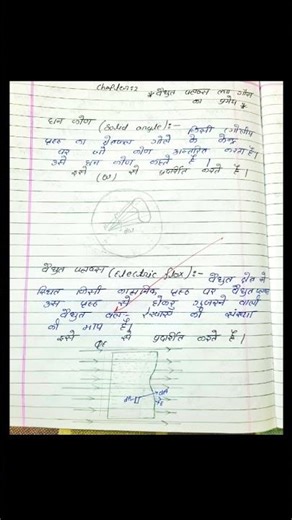 Chapter:2
* वैधुत फ्लक्स तथा गौस
का प्रमेय *
घन कोण (Solid angle):- किसी गोलीय
पृष्ठ का क्षेत्रफल गोले के केन्द्र
पर जो कोण अन्तरित करता है।
उसे घन कोण कहते है।
इसे (ω) से प्रदर्शित करते है।
वैधुत फ्लक्स (Electric flux):- वैधुत क्षेत्र में
स्थित किसी काल्पनिक पृष्ठ पर वैधुत फ्लक्स
उस पृष्ठ से होकर गुजरने वाली
वैधुत बल रेखाओं की संख्या
की माप है।
इसे से प्रदर्शित करते है।